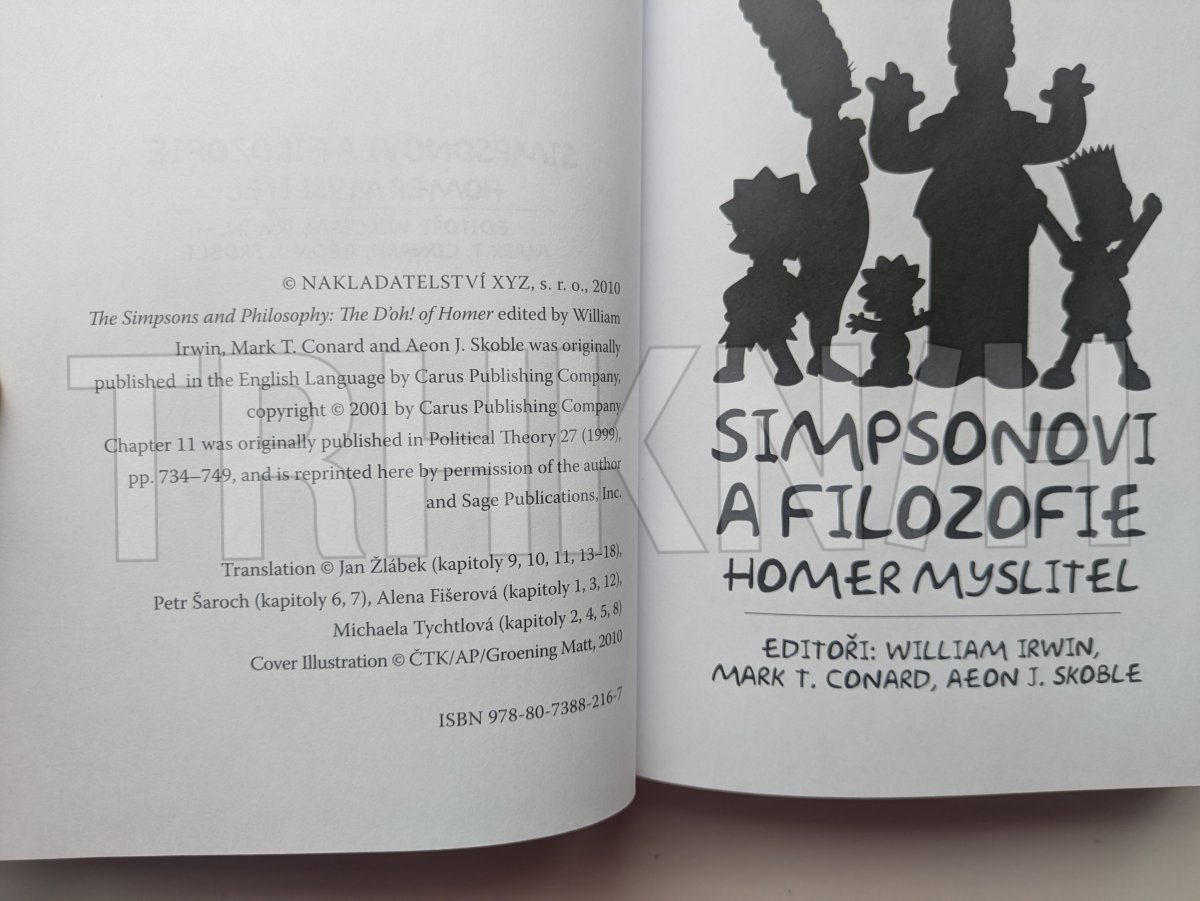 © NAKLADATELSTVÍ XYZ, s. r. o., 2010
The Simpsons and Philosophy: The D'oh! of Homer edited by William
Irwin, Mark T. Conard and Aeon J. Skoble was originally
published in the English Language by Carus Publishing Company,
copyright © 2001 by Carus Publishing Company
Chapter 11 was originally published in Political Theory 27 (1999),
pp. 734–749, and is reprinted here by permission of the author
and Sage Publications, Inc.
Translation © Jan Žlábek (kapitoly 9, 10, 11, 13–18),
Petr Šaroch (kapitoly 6, 7), Alena Fišerová (kapitoly 1, 3, 12),
Michaela Tychtlová (kapitoly 2, 4, 5, 8)
Cover Illustration © ČTK/AP/Groening Matt, 2010
ISBN 978-80-7388-216-7
SIMPSONOVI
A FILOZOFIE
HOMER MYSLITEL
EDITOŘI: WILLIAM IRWIN,
MARK T. CONARD, AEON J. SKOBLE